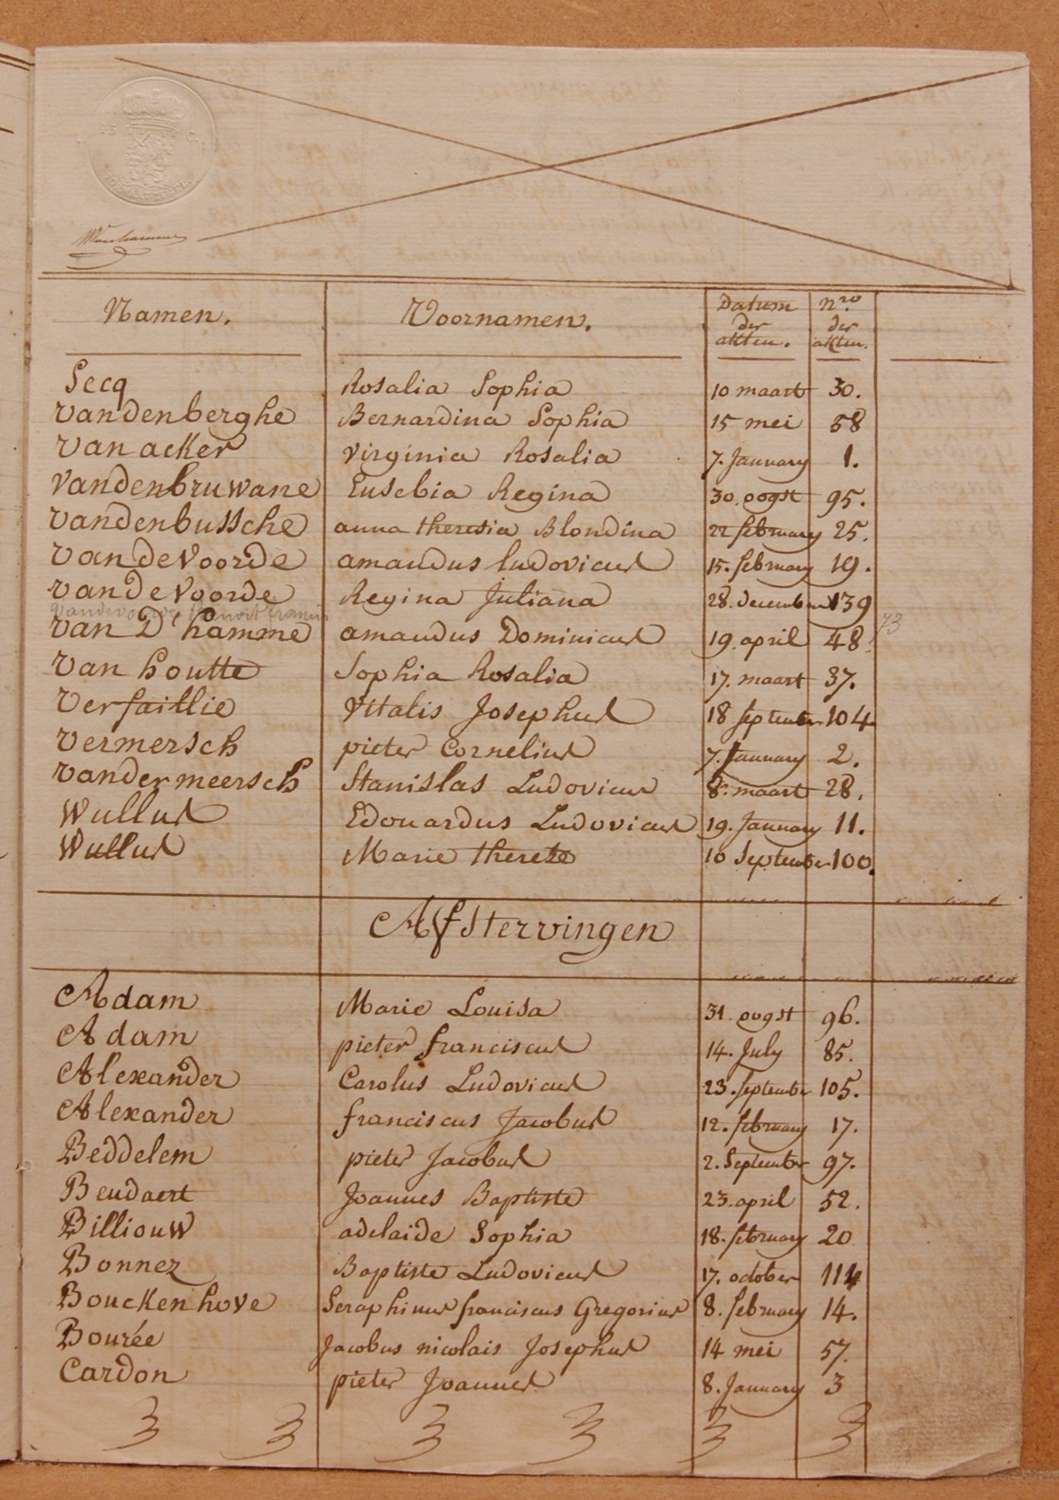 Namen. Voornamen. Datum der akten. nro der akten.
Secq Rosalia Sophia 10 maart 30.
Vandenberghe Bernardina Sophia 15 mei 58
Van acker Virginia Rosalia 7. January 1.
Vandenbruwane Eusebia Regina 30. oogst 95.
Vandenbussche anna theresia Blondina 22 february 25.
Van de Voorde amandus ludovicus 15. february 19.
Van de Voorde Regina Juliana 28. december 139
Vandevoorde 73
Van D'hamme amandus Dominicus 19. april 48
Van houtte Sophia Rosalia 17. maart 37.
Verfaillie Vitalis Josephus 18 september 104
Vermersch pieter Cornelius 7. January 2.
Vandermeersch Stanislas Ludovicus 8. maart 28.
Wullus Edouardus Ludovicus 19. January 11.
Wullus Marie thereze 10 September 100.
Afstervingen
Adam Marie Louisa 31. oogst 96.
Adam pieter franciscus 14. July 85.
Alexander Carolus Ludovicus 23. september 105.
Alexander franciscus Jacobus 12. february 17.
Beddelem pieter Jacobus 2. September 97.
Beudaert Joannes Baptiste 23. april 52.
Billiouw adelaide Sophia 18. february 20
Bonnez Baptiste Ludovicus 17. october 114
Bouckenhove Seraphinus franciscus Gregorius 8. february 14.
Bourée Jacobus nicolais Josephus 14 mei 57.
Cardon pieter Joannes 8. January 3